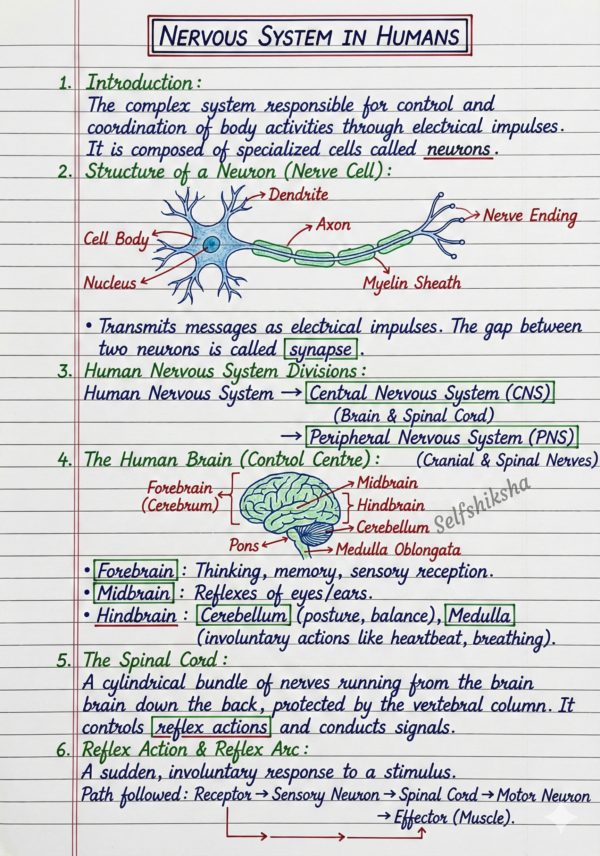 NERVOUS SYSTEM IN HUMANS
1. Introduction:
The complex system responsible for control and
coordination of body activities through electrical impulses.
It is composed of specialized cells called neurons.
2. Structure of a Neuron (Nerve Cell):
Dendrite
Axon
Nerve Ending
Cell Body
Nucleus
Myelin Sheath
• Transmits messages as electrical impulses. The gap between
two neurons is called synapse.
3. Human Nervous System Divisions:
Human Nervous System → Central Nervous System (CNS)
(Brain & Spinal Cord)
→ Peripheral Nervous System (PNS)
4. The Human Brain (Control Centre): (Cranial & Spinal Nerves)
Forebrain
(Cerebrum)
Midbrain
Hindbrain
Cerebellum
Pons
Medulla Oblongata
Selfshiksha
• Forebrain: Thinking, memory, sensory reception.
• Midbrain: Reflexes of eyes/ears.
• Hindbrain: Cerebellum (posture, balance), Medulla
(involuntary actions like heartbeat, breathing).
5. The Spinal Cord:
A cylindrical bundle of nerves running from the brain
brain down the back, protected by the vertebral column. It
controls reflex actions and conducts signals.
6. Reflex Action & Reflex Arc:
A sudden, involuntary response to a stimulus.
Path followed: Receptor → Sensory Neuron → Spinal Cord → Motor Neuron
→ Effector (Muscle).